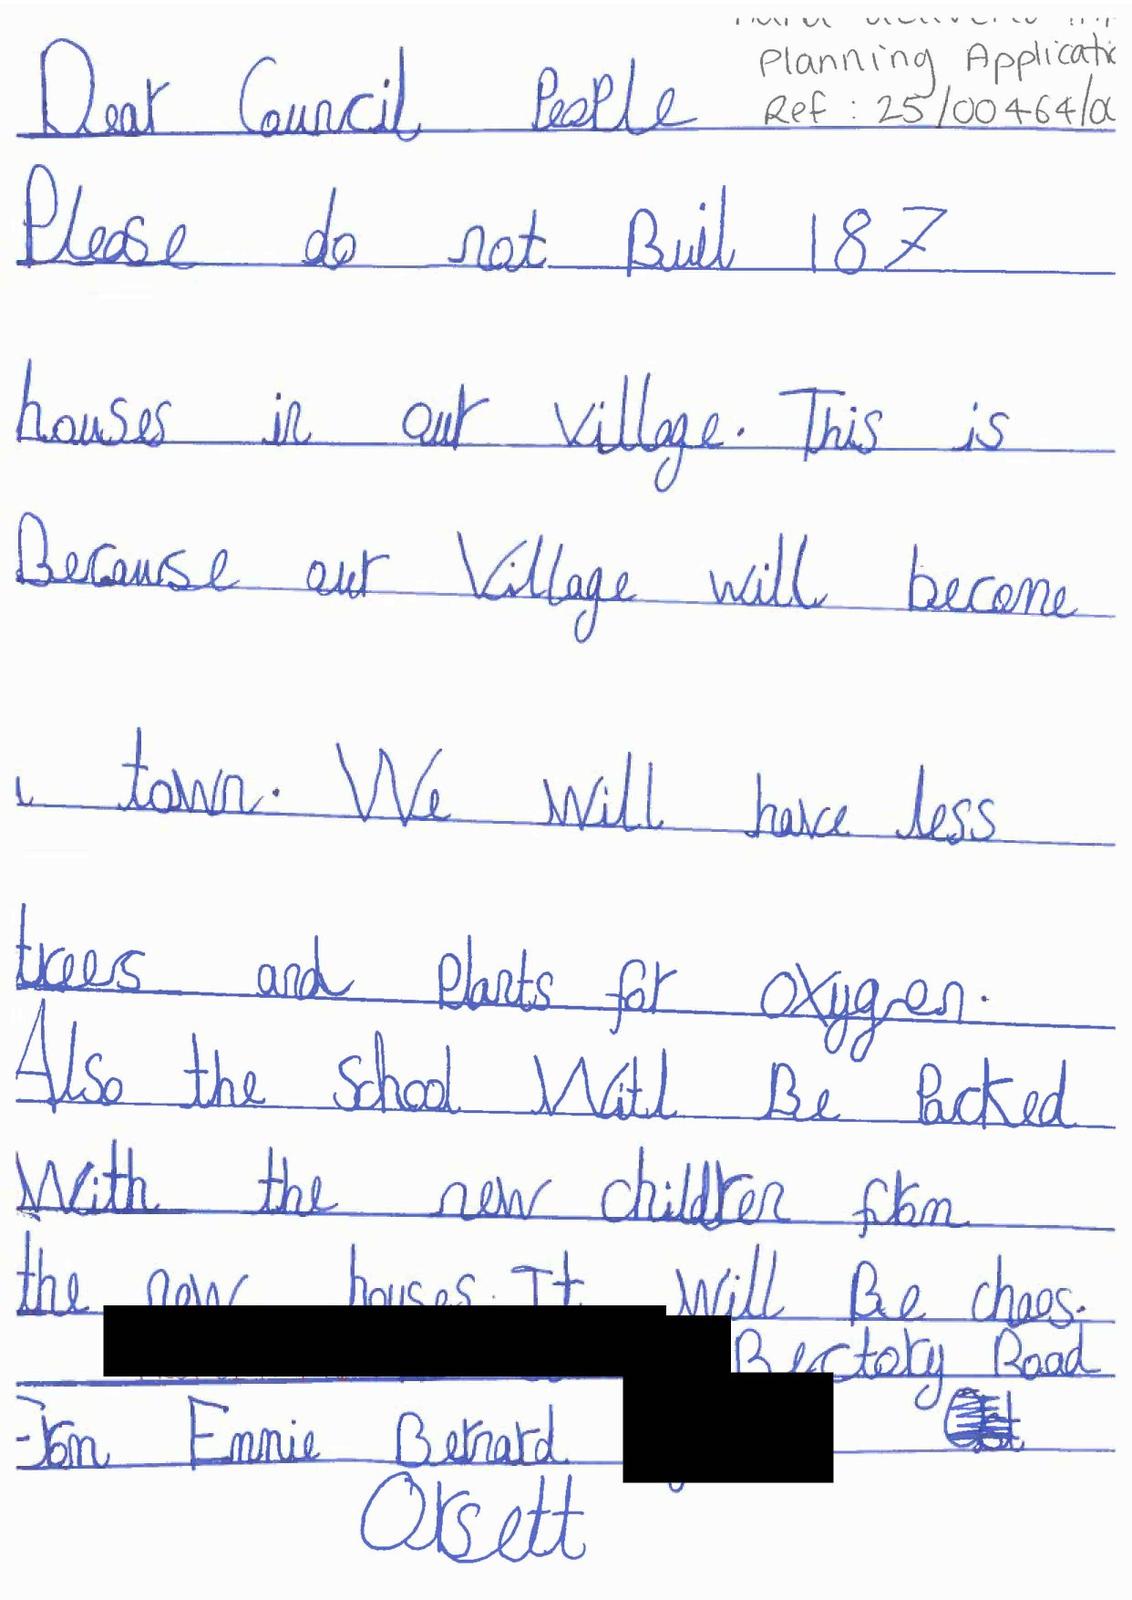 Planning Applicati
Ref : 25/00464/o
Dear Council People
Please do not Buil 187
houses in our village. This is
Because our Village will become
town. We will have less
trees and plants for oxygen.
Also the school Will Be Packed
With the new children from
the new houses. It will Be chaos.
Rectory Road
From Emmie Bernard
Orsett